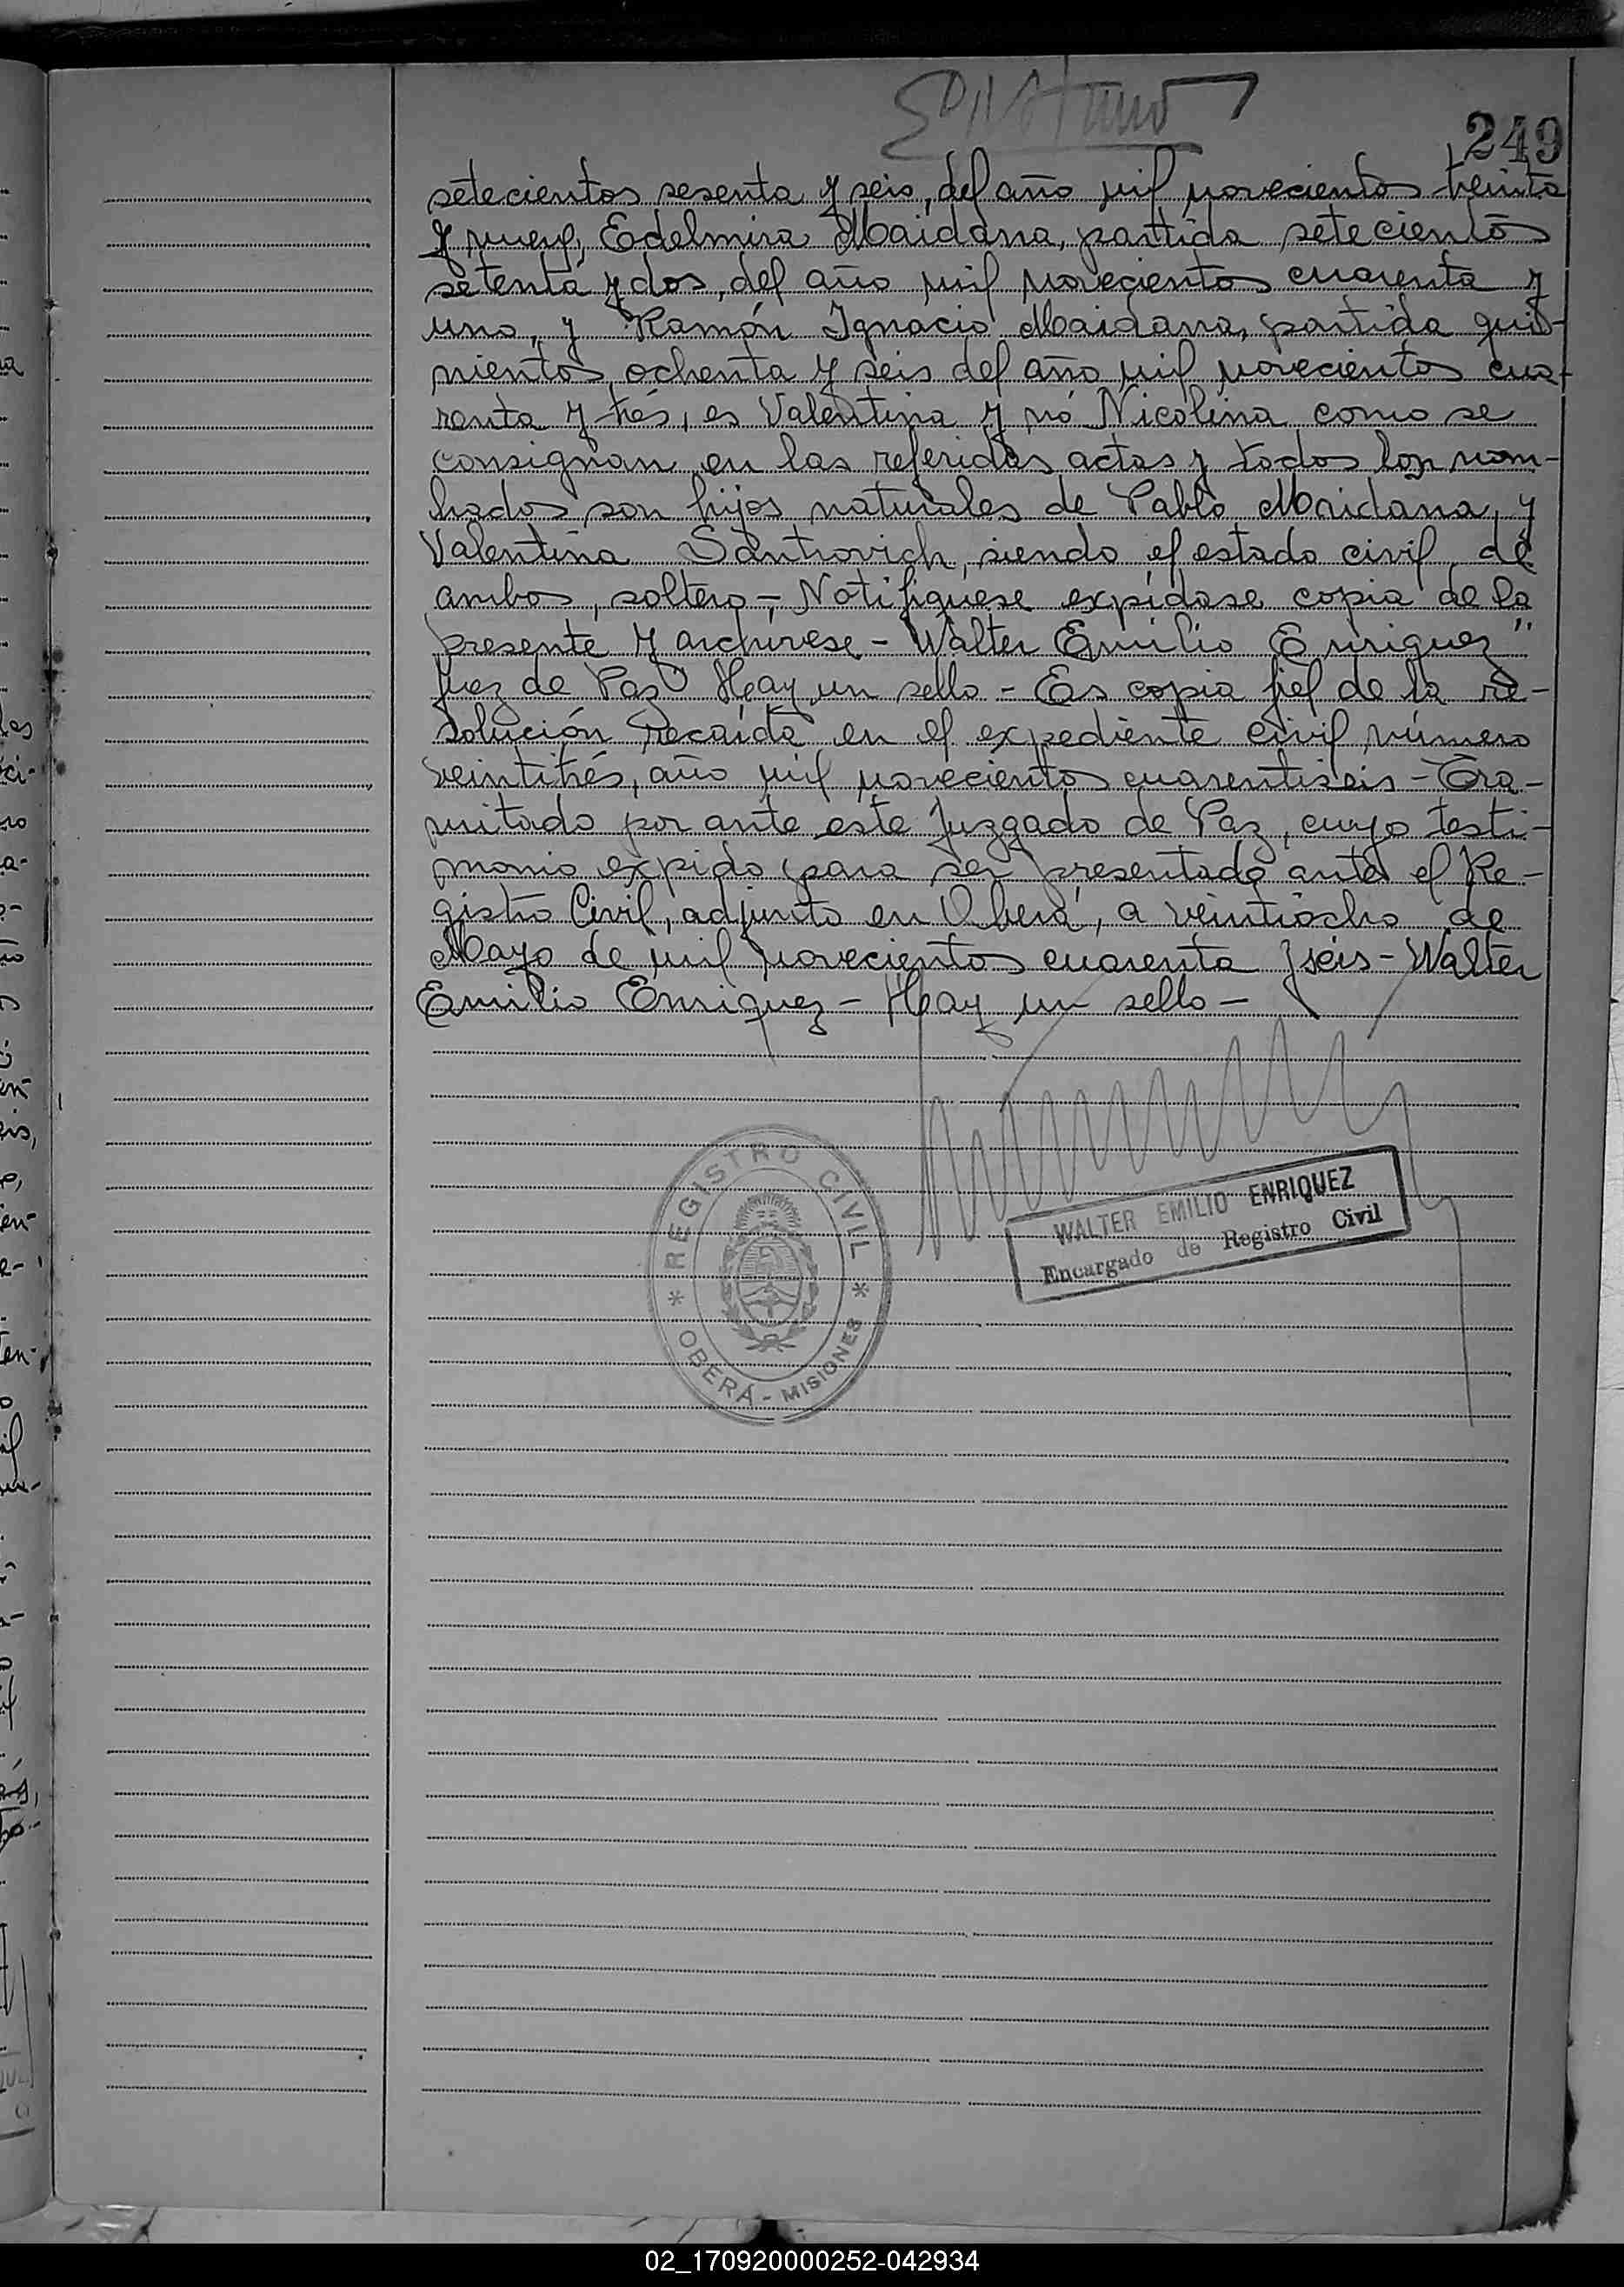 249
setecientos sesenta y seis, del año mil novecientos treinta
y nueve, Edelmira Maidana, partida setecientos
setenta y dos, del año mil novecientos cuarenta y
uno, y Ramón Ignacio Maidana, partida qui-
nientos ochenta y seis del año mil novecientos cua-
renta y trés, es Valentina y nó Nicolina como se
consignan en las referidas actas y todos los nom-
brados son hijos naturales de Pablo Maidana, y
Valentina Santrovich, siendo el estado civil de
ambos, soltero-, Notifiquese expídase copia de la
presente y archívese - Walter Emilio Enriquez"
Juez de Paz" Hay un sello - Es copia fiel de la re-
solución recaída en el expediente civil número
veintitrés, año mil novecientos cuarentiseis - Tra-
mitado por ante este Juzgado de Paz, cuyo testi-
monio expido para ser presentado ante el Re-
gistro Civil, adjunto en Oberá, a veintiocho de
Mayo de mil novecientos cuarenta y seis - Walter
Emilio Enriquez - Hay un sello -
REGISTRO CIVIL
* OBERÁ - MISIONES *
WALTER EMILIO ENRIQUEZ
Encargado de Registro Civil
02_170920000252-042934